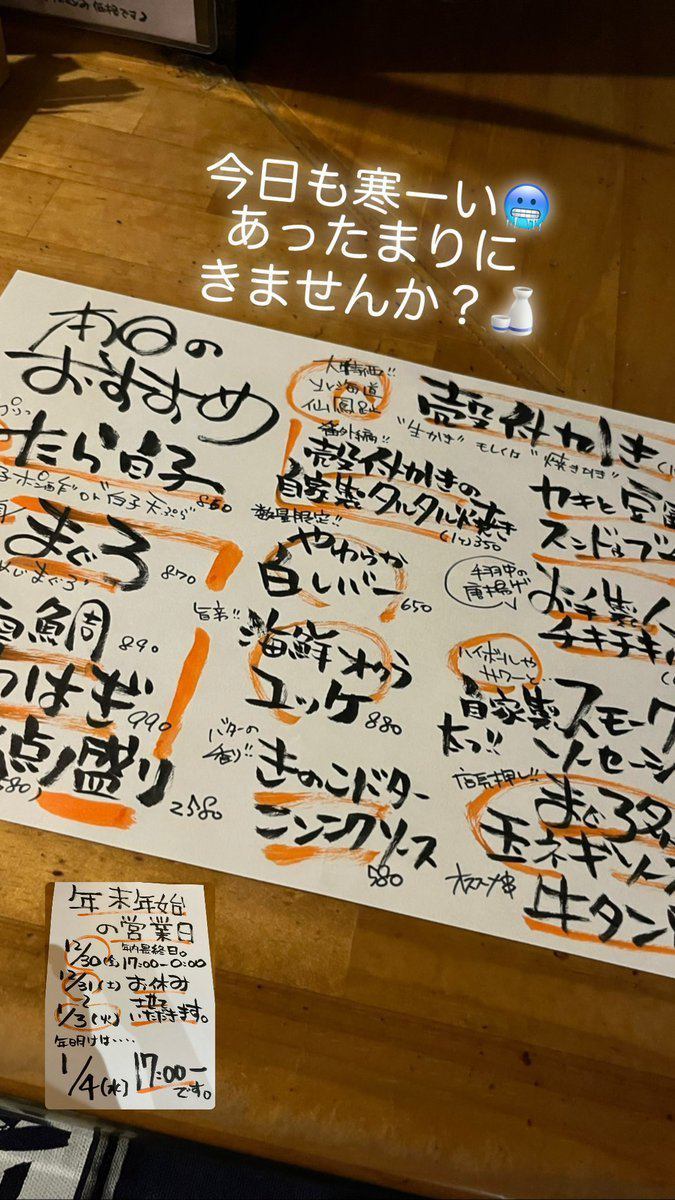 今日も寒ーい🥶
あったまりに
きませんか？🍶
本日の
おすすめ
たら白子
860
まぐろ
870
鯛
890
はぎ
990
点盛り
2580
大特価!!
北海道
仙鳳趾
殻付かき
"生かき" もしくは "焼きがき"
番外編!!
殻付かきの
自家製タルタルド焼き
(1ケ)350
数量限定!!
やわらか
白レバー
650
旨辛!!
海鮮
ユッケ
880
バターの
香り
きのこバター
ニンニクソース
580
カキと豆富
スンドゥブ
手羽中の
唐揚げ
お手製
チキチキ
ハイボールや
サワーと…
自家製スモーク
太っ!!
ソーセージ
店長押し!!
まぐろ
玉ネギソース
牛タン
年末年始
の営業日
12/30(金) 年内最終日。
17:00-0:00
12/31(土) お休み
1/3(火) いただきます。
年明けは‥‥
1/4(水) 17:00ー
です。